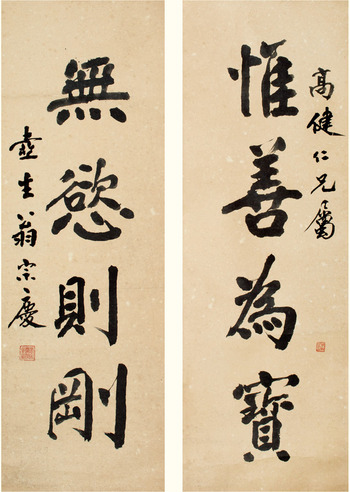 高健仁兄屬
惟善為寶
無慾則剛
壺生翁宗慶